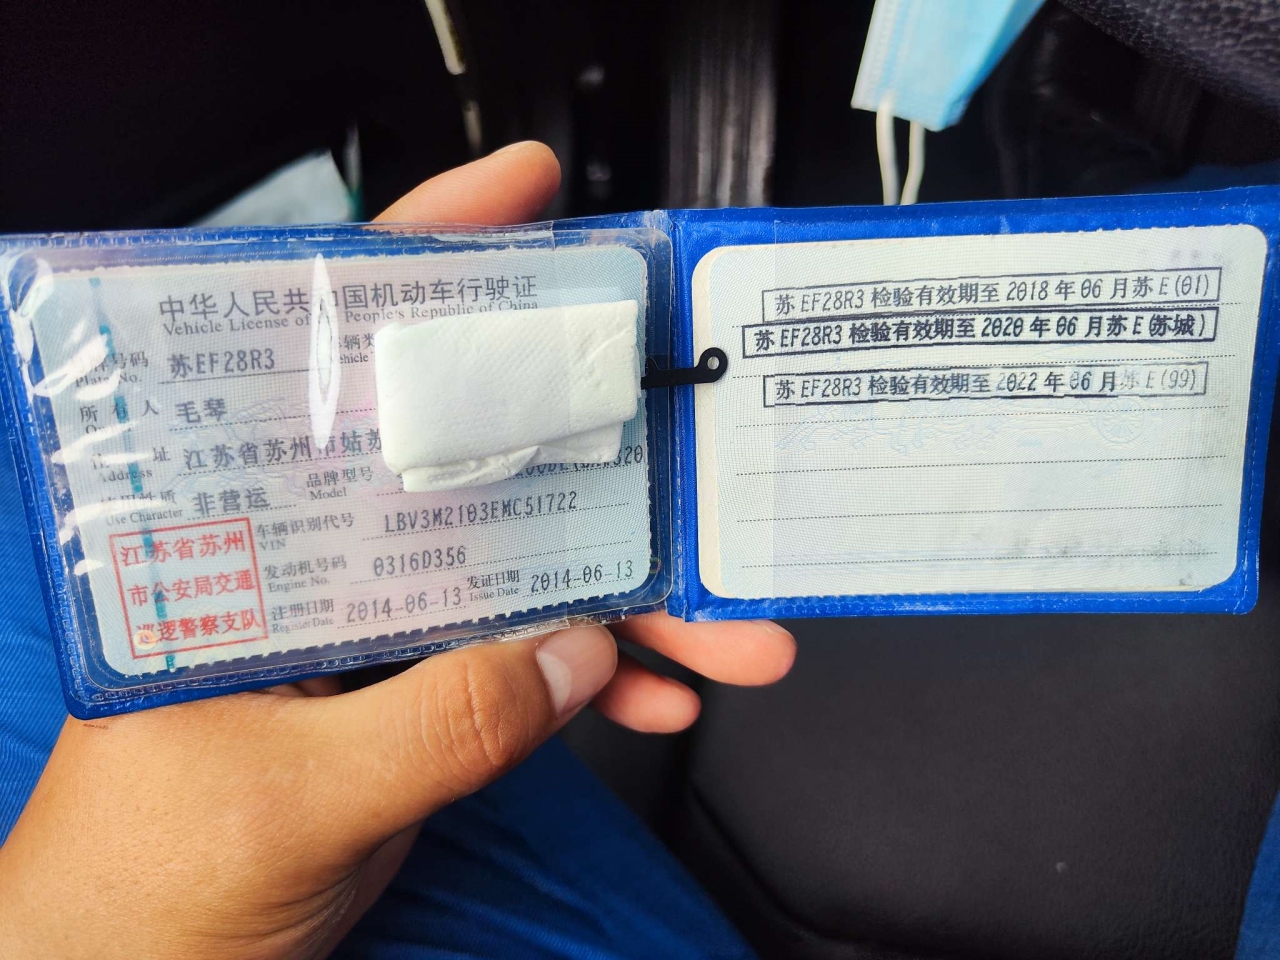 中华人民共和国机动车行驶证
Vehicle License of the People's Republic of China
号码 苏EF28R3
Plate No.
所有人 毛琴
址 江苏省苏州市姑苏
Address
品牌型号
Model
使用性质 非营运
Use Character
车辆识别代号 LBV3M2103EMC51722
VIN
发动机号码 0316D356
Engine No.
注册日期 2014-06-13 发证日期 2014-06-13
Register Date Issue Date
江苏省苏州
市公安局交通
巡逻警察支队
苏EF28R3 检验有效期至 2018 年 06 月苏E(01)
苏EF28R3 检验有效期至 2020 年 06 月苏E(苏城)
苏EF28R3 检验有效期至 2022 年 06 月苏E(99)